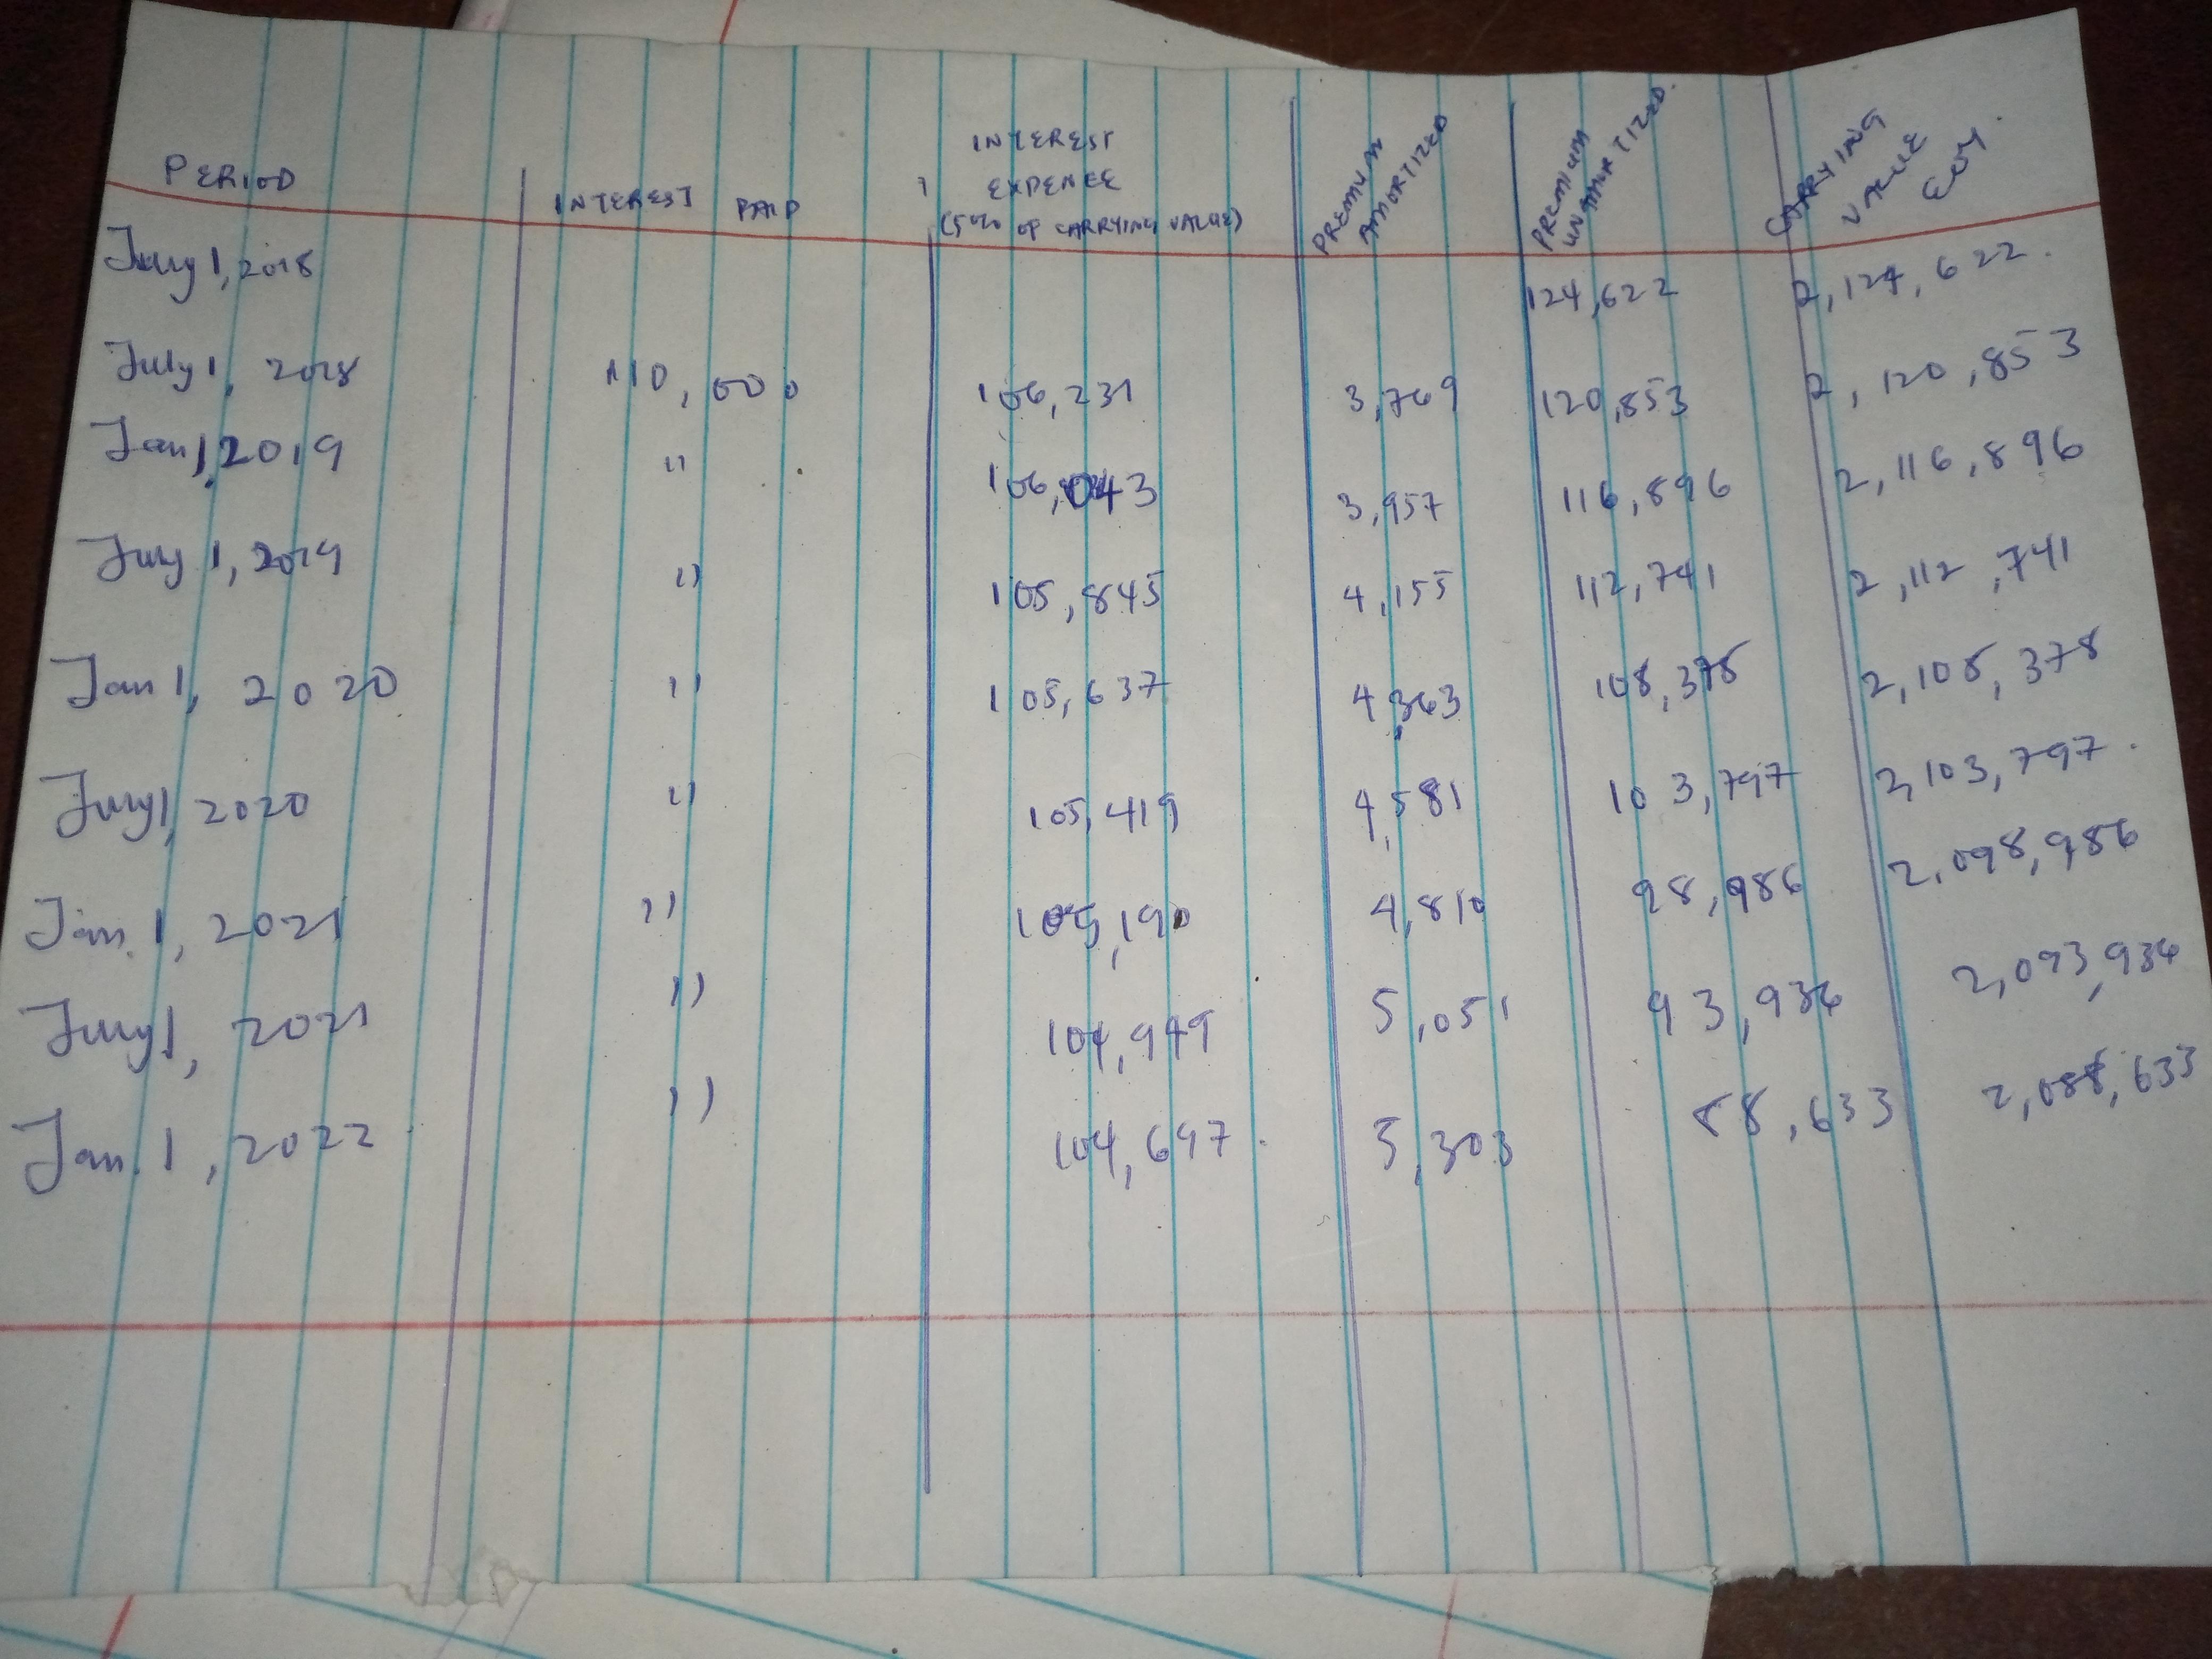 PERIOD INTEREST PAID INTEREST EXPENCE (5% OF CARRYING VALUE) PREMIUM AMORTIZED PREMIUM UNAMORTIZED. CARRYING VALUE EOY.
July 1, 2018 124,622 2,124,622.
July 1, 2018 110,000 106,231 3,769 120,853 2,120,853
Jan 1, 2019 " 106,043 3,957 116,896 2,116,896
July 1, 2019 " 105,845 4,155 112,741 2,112,741
Jan 1, 2020 " 105,637 4,363 108,378 2,108,378
July 1, 2020 " 105,419 4,581 103,797 2,103,797.
Jan. 1, 2021 " 105,190 4,810 98,986 2,098,986
July 1, 2021 " 104,949 5,051 93,936 2,093,936
Jan. 1, 2022 " 104,697. 5,303 88,633 2,088,633